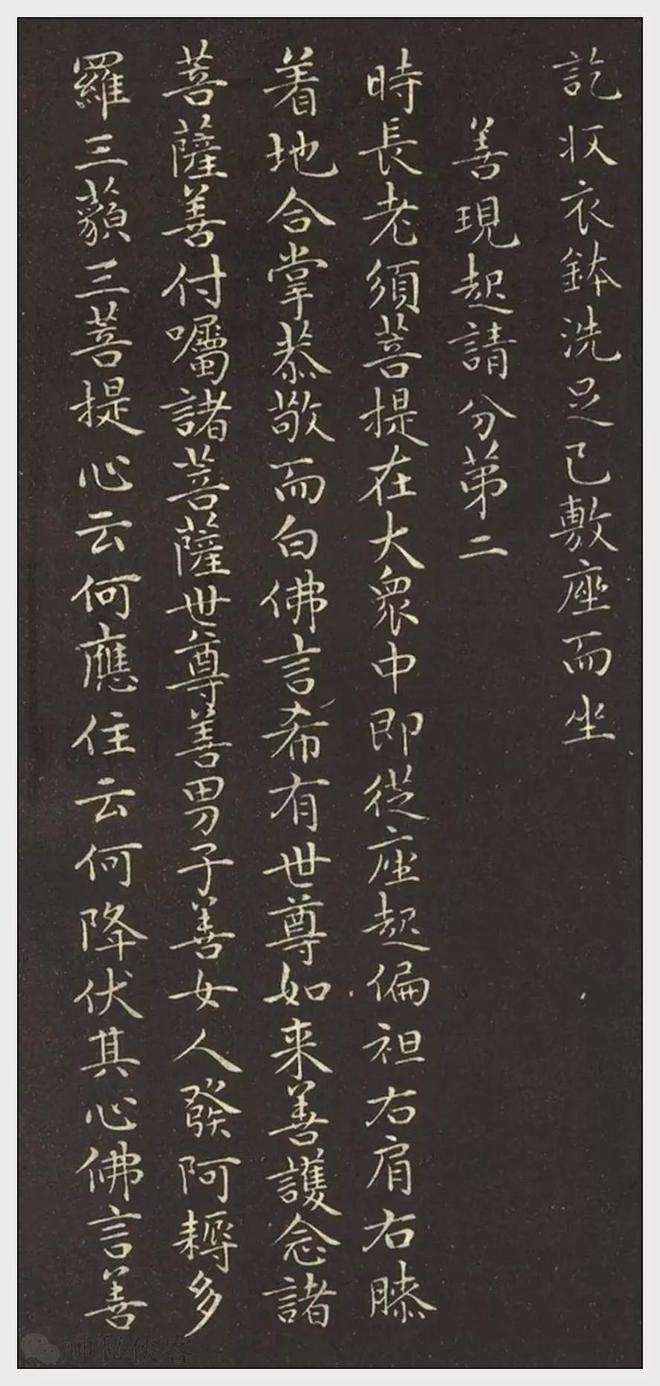 訖收衣鉢洗足已敷座而坐
善現起請分苐二
時長老須菩提在大衆中即從座起偏袒右肩右膝
着地合掌恭敬而白佛言希有世尊如来善護念諸
菩薩善付囑諸菩薩世尊善男子善女人發阿耨多
羅三藐三菩提心云何應住云何降伏其心佛言善